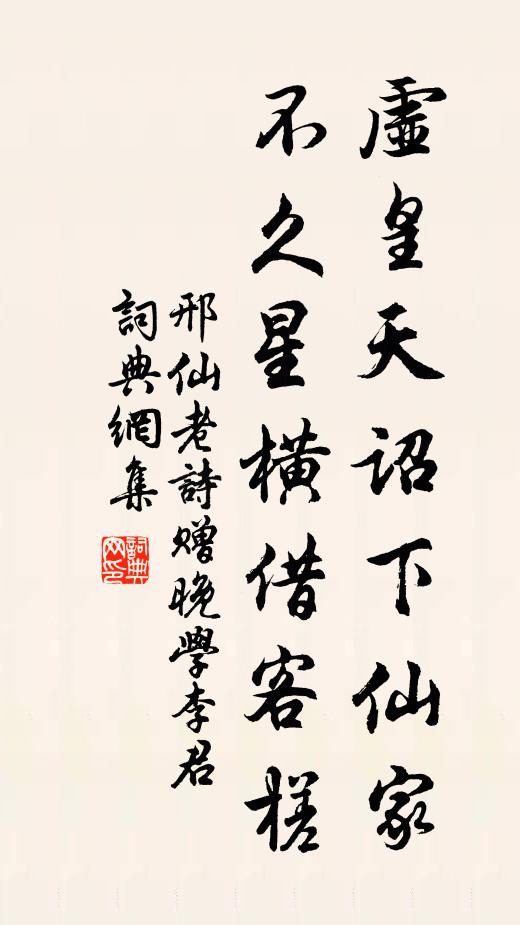 虛皇天詔下仙家
不久星橫借客槎
邢仙老詩贈晚學李君
詞典網集
詞典网印